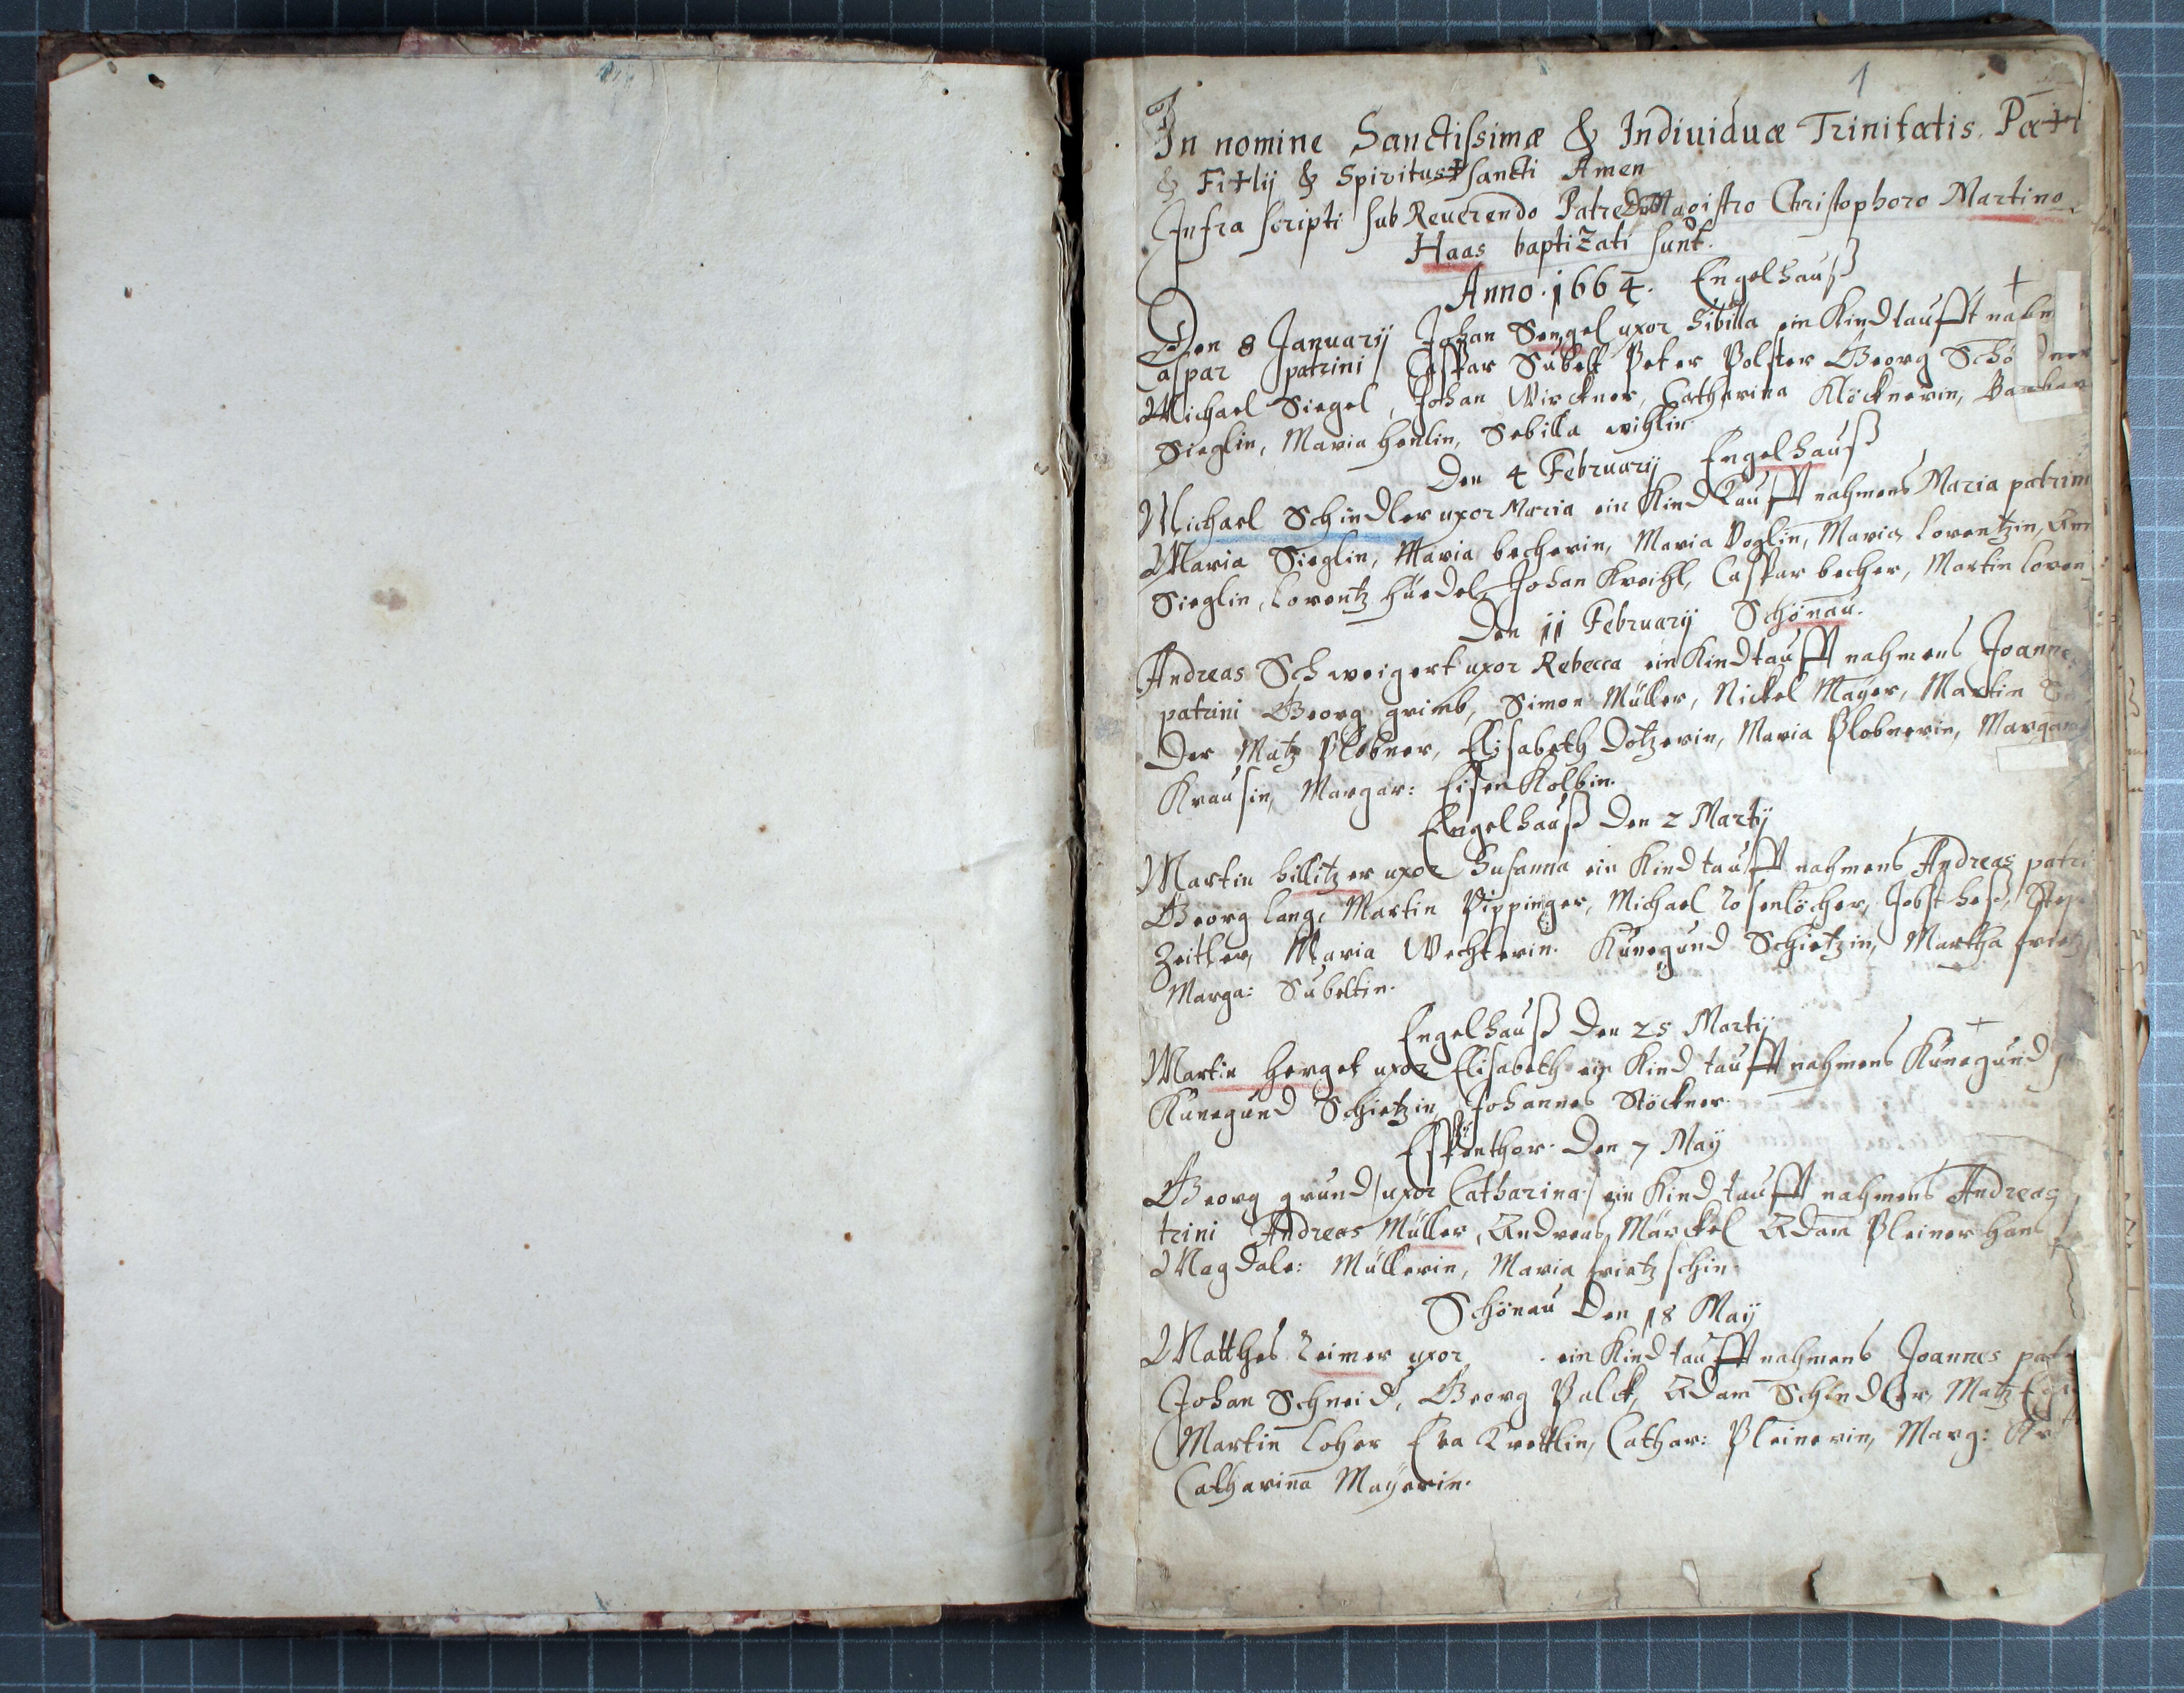 1
In nomine Sanctissimæ & Indiuiduæ Trinitatis. Pa+tr
& Fi+lij & Spiritus + sancti Amen
Infra scripti sub Reuerendo Patre Magistro Christophoro Martino
Haas baptizati sunt.
Anno. 1664. Engelhauß
Den 8 Januarij Johan Sengel uxor Sibilla ein Kind taufft nahm
Caspar patrini Caspar Subelt Peter Polster Georg
Michael Siegel, Johan Wirckner, Catharina Klöcknerin,
Sieglin, Maria Henlin, Sebilla
Den 4 Februarij Engelhauß
Michael Schindler uxor Maria ein Kind taufft nahmens Maria patrini
Maria Sieglin, Maria becherin, Maria Voglin, Maria Lorentzin,
Sieglin, Lorentz Hüedel, Johan Kreihl, Caspar becher, Martin loren
Den 11 Februarij Schönau.
Andreas Schweigert uxor Rebecca ein Kind taufft nahmens Joannes
patrini Georg grimb, Simon Müller, Nickel Mayer, Martin
der Matz Plobner, Elisabeth Dotzerin, Maria Plobnerin, Margar
Krausin, Margar: Eisenkolbin.
Engelhauß Den 2 Martij
Martin hillitzer uxor Susanna ein Kind taufft nahmens Andreas patri
Georg lang, Martin Pippinger, Michael Rosenlöcher, Jobst heß,
Zeitler, Maria Wechterin. Kunegund Schietzin, Martha
Marga: Subeltin.
Engelhauß Den 25 Martij
Martin Herget uxor Elisabeth ein Kind taufft nahmens Kunegund
Kunegund Schietzin, Johannes Stöckner.
Espenthor. Den 7 May
Georg grund/uxor Catharina/ ein Kind taufft nahmens Andreas
trini Andreas Müller, Andreas Märckel Adam Pleiner Hans
Magdale: Müllerin, Maria frietzschin.
Schönau Den 18 Maij
Matthes Reimer uxor . ein Kind taufft nahmens Joannes pat
Johan Schneid, Georg Palck, Adam Schindler, Matz
Martin Loher Eva Krettlin, Cathar: Pleinerin, Marg: Kr
Catharina Mayerin.